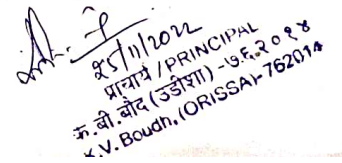 25/11/2022
प्राचार्य/PRINCIPAL
के.बी.बौद (उडीशा)-७६२०१४
K.V. Boudh, (ORISSA)-762014